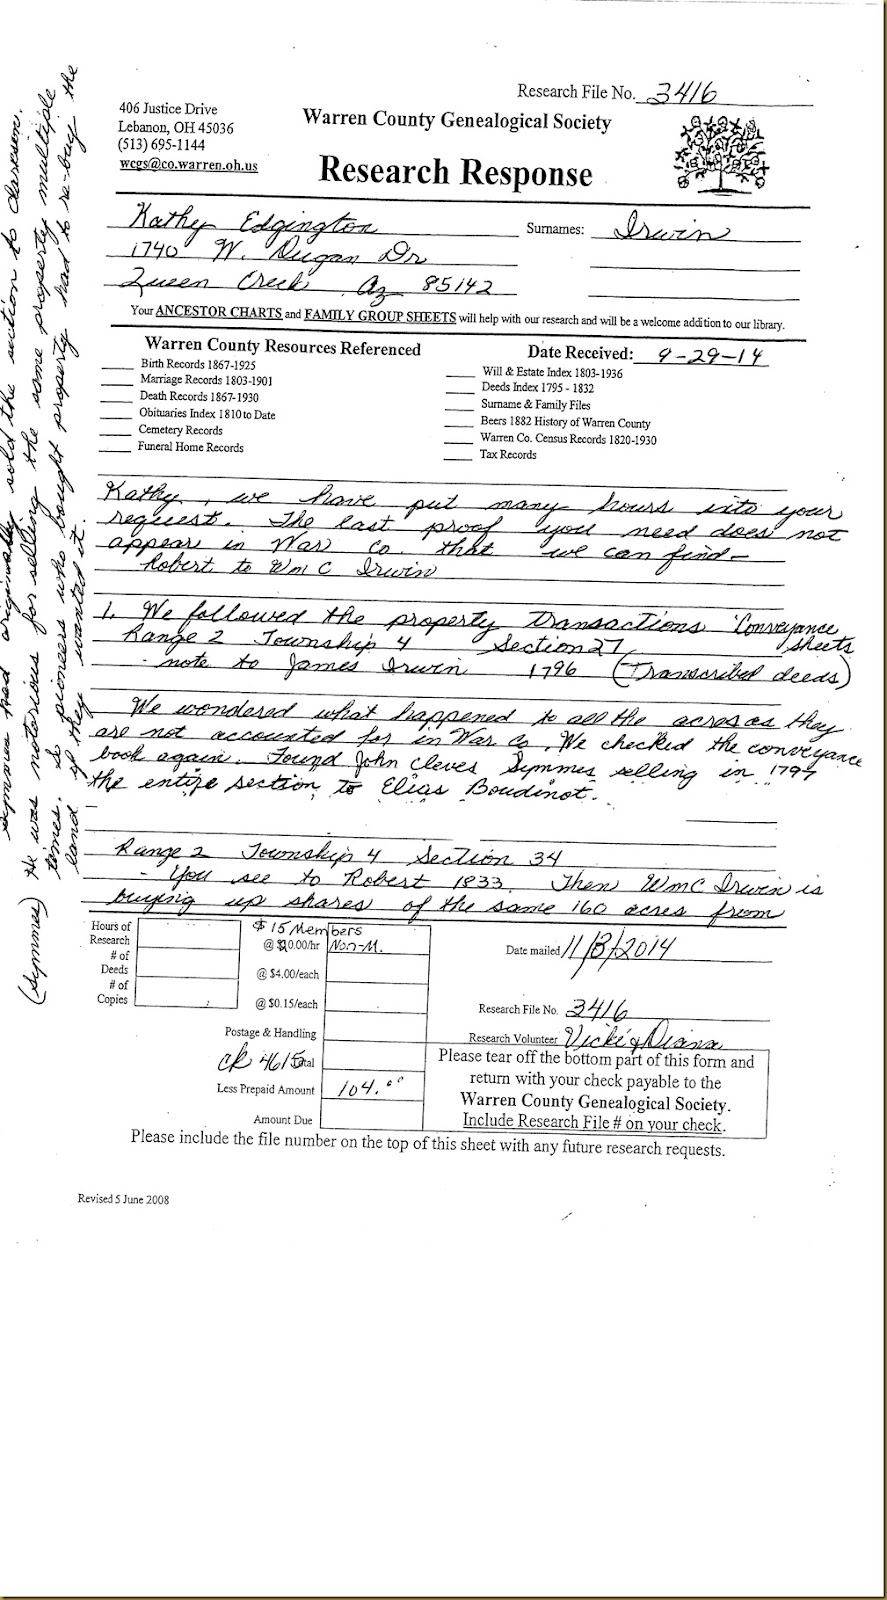 Research File No. 3416
406 Justice Drive
Lebanon, OH 45036
(513) 695-1144
wcgs@co.warren.oh.us
Warren County Genealogical Society
Research Response
Kathy Edgington
1740 W. Dugan Dr
Queen Creek, Az 85142
Surnames: Irwin
Your ANCESTOR CHARTS and FAMILY GROUP SHEETS will help with our research and will be a welcome addition to our library.
Warren County Resources Referenced
Birth Records 1867-1925
Marriage Records 1803-1901
Death Records 1867-1930
Obituaries Index 1810 to Date
Cemetery Records
Funeral Home Records
Date Received: 9-29-14
Will & Estate Index 1803-1936
Deeds Index 1795 - 1832
Surname & Family Files
Beers 1882 History of Warren County
Warren Co. Census Records 1820-1930
Tax Records
Kathy, we have put many hours into your
request. The last proof you need does not
appear in War Co. that we can find -
Robert to Wm C Irwin
1. We followed the property transactions 'Conveyance
sheets
Range 2 Township 4 Section 27,
- note to James Irwin 1796 (Transcribed deeds)
We wondered what happened to all the acres as they
are not accounted for in War Co. We checked the conveyance
book again. Found John Cleves Symmes selling in 1797
the entire section to Elias Boudinot.
Range 2 Township 4 Section 34
- You see to Robert 1833. Then Wm C Irwin is
buying up shares of the same 160 acres from
Hours of
Research
# of
Deeds
# of
Copies
$15 Members
@ $20.00/hr Non-M.
@ $4.00/each
@ $0.15/each
Postage & Handling
ck 4615 Total
Less Prepaid Amount 104.00
Amount Due
Date mailed 11/3/2014
Research File No. 3416
Research Volunteer Vicki & Diana
Please tear off the bottom part of this form and
return with your check payable to the
Warren County Genealogical Society.
Include Research File # on your check.
Please include the file number on the top of this sheet with any future research requests.
Revised 5 June 2008
Symmes had originally sold the section to Clarkson.
(Symmes) He was notorious for selling the same property multiple
times. So pioneers who bought property had to re-buy the
land if they wanted it.